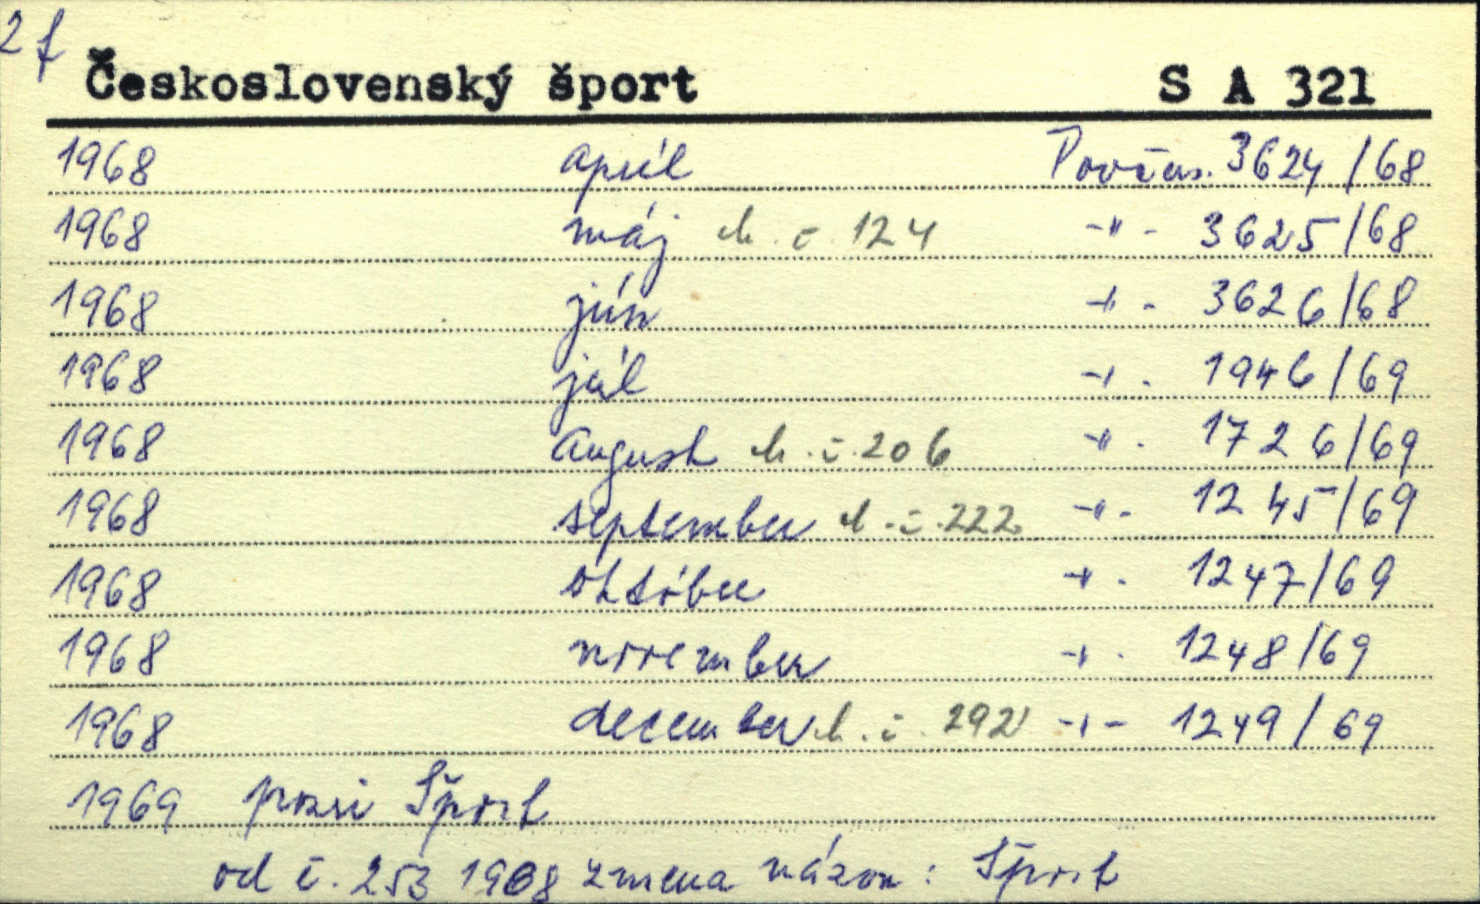 2f
Československý šport S A 321
1968 apríl Povčas. 3624/68
1968 máj ch. č. 124 -"- 3625/68
1968 jún -"- 3626/68
1968 júl -"- 1946/69
1968 august ch. č. 206 -"- 1726/69
1968 september ch. č. 222 -"- 1245/69
1968 október -"- 1247/69
1968 november -"- 1248/69
1968 december ch. č. 292 -"- 1249/69
1969 pozri Šport
od č. 253 1968 zmena názov : Šport